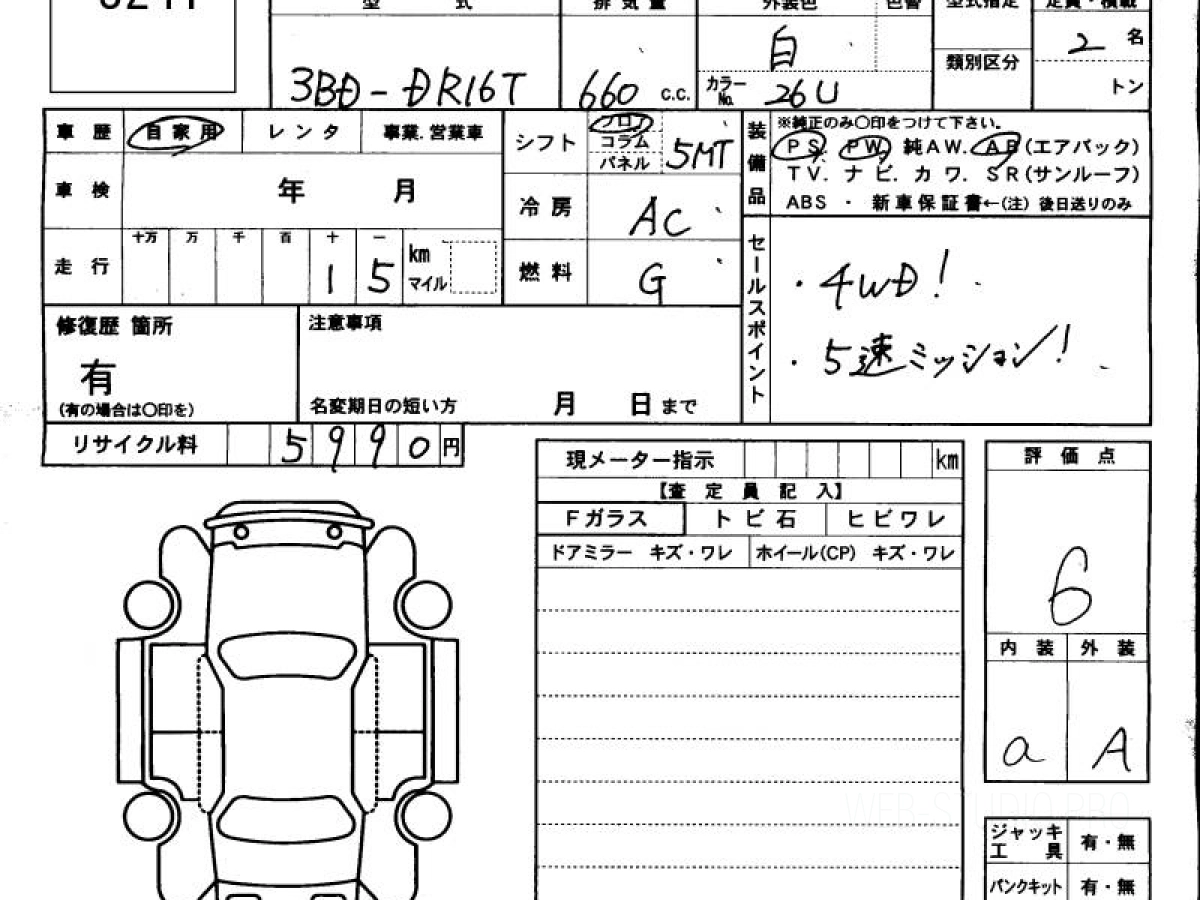 型 式 排気量 外装色 色替 型式指定 定員・積載
3BD-DR16T 660 c.c. 白 2 名
カラーNo. 26U 類別区分 トン
車歴 自家用 レンタ 事業.営業車 シフト フロア コラム パネル 5MT
装備品 ※純正のみ〇印をつけて下さい。
PS. PW. 純AW. AB(エアバック)
TV. ナビ. カワ. SR(サンルーフ)
ABS ・ 新車保証書←(注) 後日送りのみ
車検 年 月 冷房 AC
走行 十万 万 千 百 十 一 1 5 km マイル 燃料 G
セールスポイント
・4WD!
・5速ミッション!
修復歴 箇所
有
(有の場合は〇印を)
注意事項
名変期日の短い方 月 日 まで
リサイクル料 5990円
現メーター指示 km
【査定員記入】
Fガラス トビ石 ヒビワレ
ドアミラー キズ・ワレ ホイール(CP) キズ・ワレ
評価点
6
内装 外装
a A
WEB-STUDIO.PRO
ジャッキ工具 有・無
パンクキット 有・無